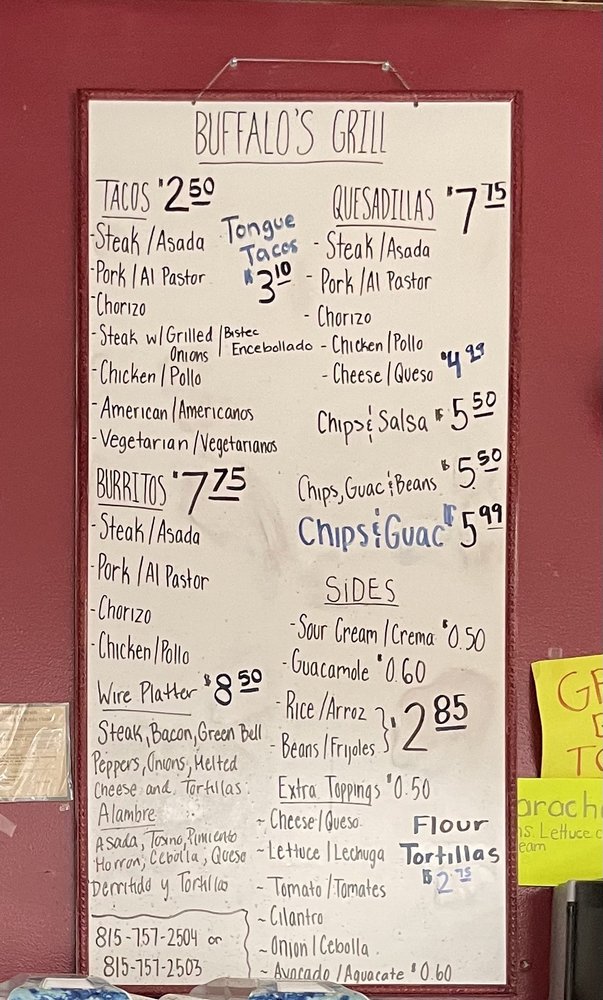 BUFFALO'S GRILL
TACOS $2.50
-Steak/Asada
-Pork/Al Pastor
-Chorizo
-Steak w/Grilled Onions / Bistec Encebollado
-Chicken/Pollo
-American/Americanos
-Vegetarian/Vegetarianos
Tongue
Tacos
$3.10
BURRITOS $7.75
-Steak/Asada
-Pork/Al Pastor
-Chorizo
-Chicken/Pollo
Wire Platter $8.50
Steak, Bacon, Green Bell
Peppers, Onions, Melted
Cheese and Tortillas.
Alambre
Asada, Tosino, Pimiento
Morron, Cebolla, Queso
Derritido y Tortillas
815-757-2504 or
815-757-2503
QUESADILLAS $7.75
- Steak/Asada
- Pork/Al Pastor
- Chorizo
- Chicken/Pollo
- Cheese/Queso $4.99
Chips & Salsa $5.50
Chips, Guac & Beans $5.50
Chips & Guac $5.99
SIDES
-Sour Cream/Crema $0.50
-Guacamole $0.60
-Rice/Arroz
-Beans/Frijoles } $2.85
Extra Toppings $0.50
~ Cheese/Queso
~ Lettuce/Lechuga
~ Tomato/Tomates
~ Cilantro
~ Onion/Cebolla
~ Avocado/Aguacate $0.60
Flour
Tortillas
$2.75
Lettuce